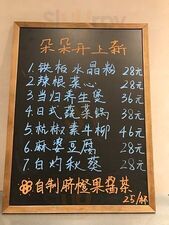 朵朵开上新
1.铁板水晶粉 28元
2.辣根菜心 28元
3.当归养生煲 36元
4.日式蔬菜锅 38元
5.杭椒素牛柳 46元
6.麻婆豆腐 28元
7.白灼秋葵 28元
自制脐橙果茶
25/杯